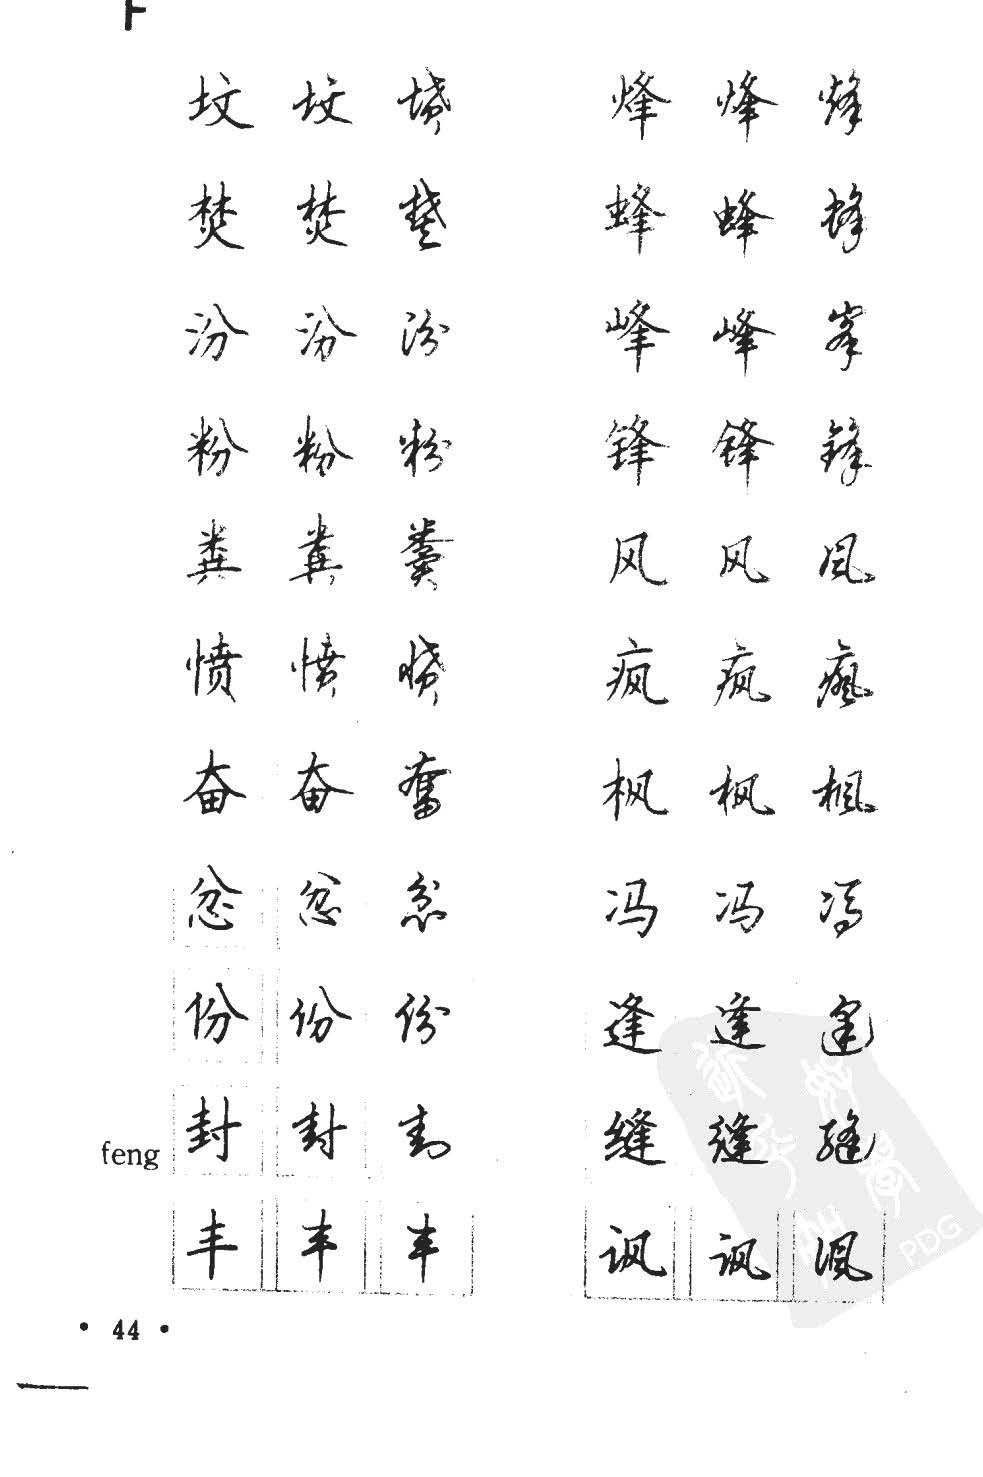 F
坟 坟 墳
焚 焚 焚
汾 汾 汾
粉 粉 粉
粪 粪 糞
愤 愤 憤
奋 奋 奮
忿 忿 忿
份 份 份
feng 封 封 封
丰 丰 丰
烽 烽 烽
蜂 蜂 蜂
峰 峰 峯
锋 锋 鋒
风 风 風
疯 疯 瘋
枫 枫 楓
冯 冯 馮
逢 逢 逢
缝 缝 縫
讽 讽 諷
• 44 •
PDG